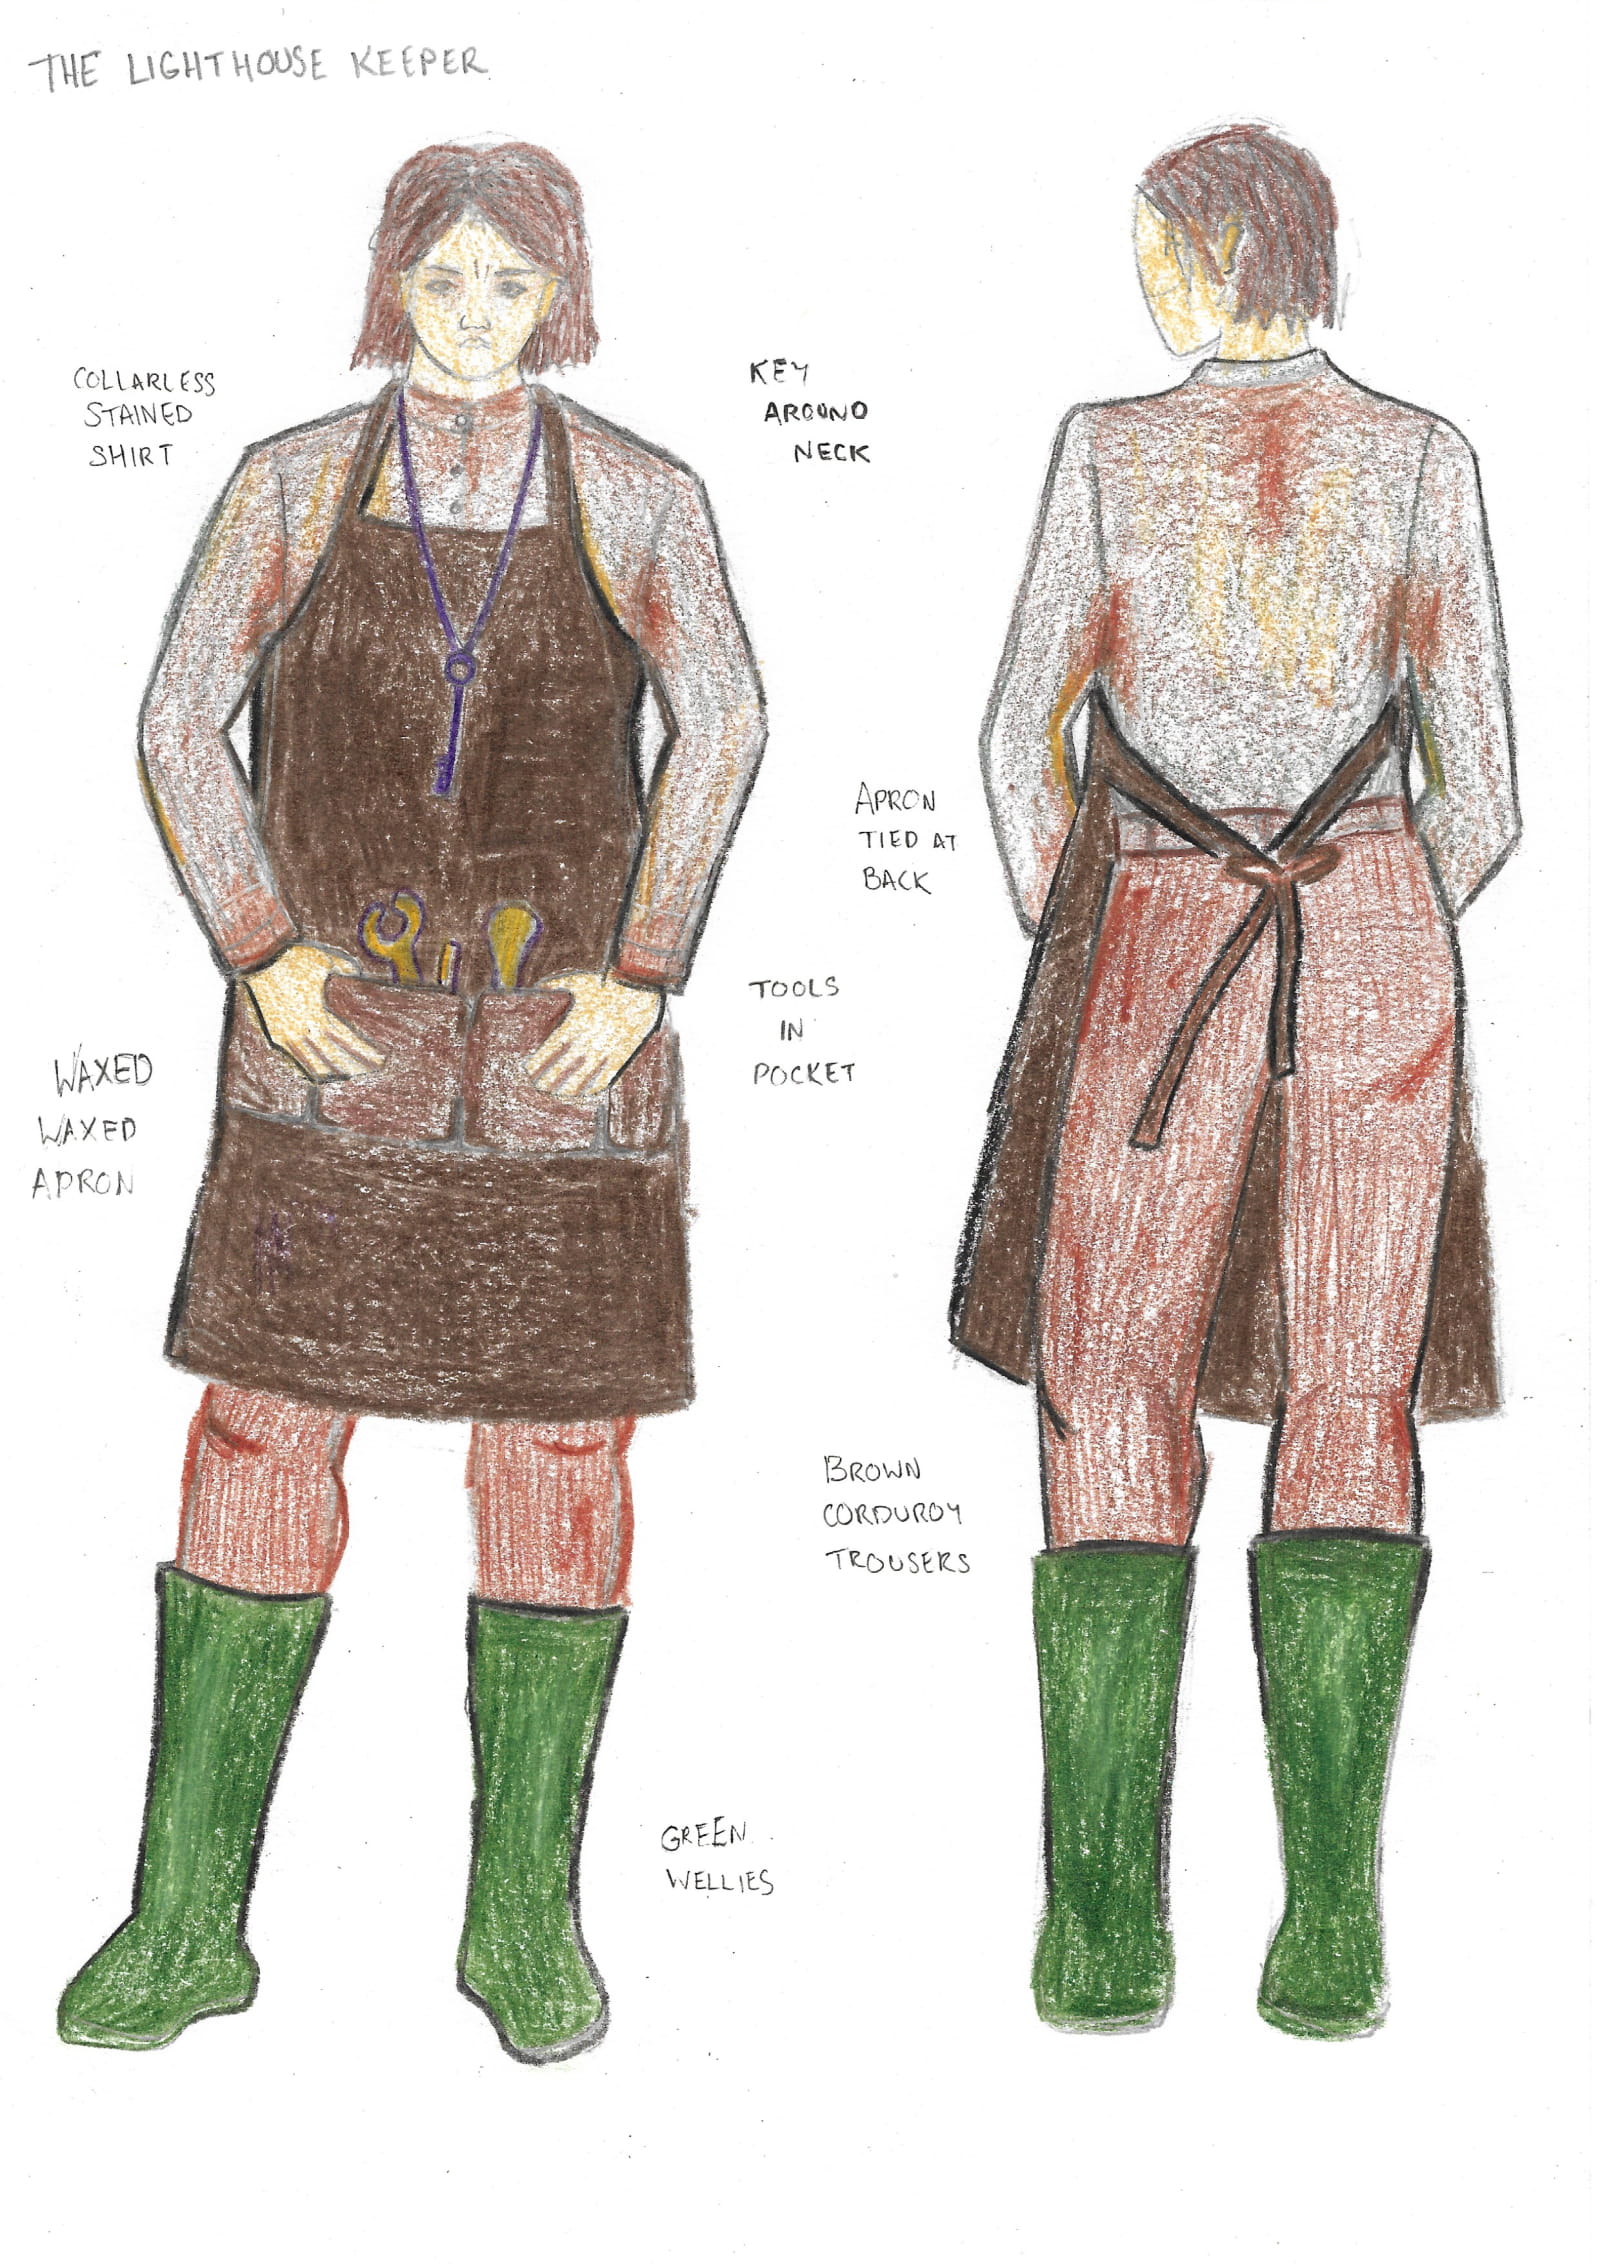 THE LIGHTHOUSE KEEPER
COLLARLESS
STAINED
SHIRT
KEY
AROUND
NECK
APRON
TIED AT
BACK
TOOLS
IN
POCKET
WAXED
WAXED
APRON
BROWN
CORDUROY
TROUSERS
GREEN
WELLIES